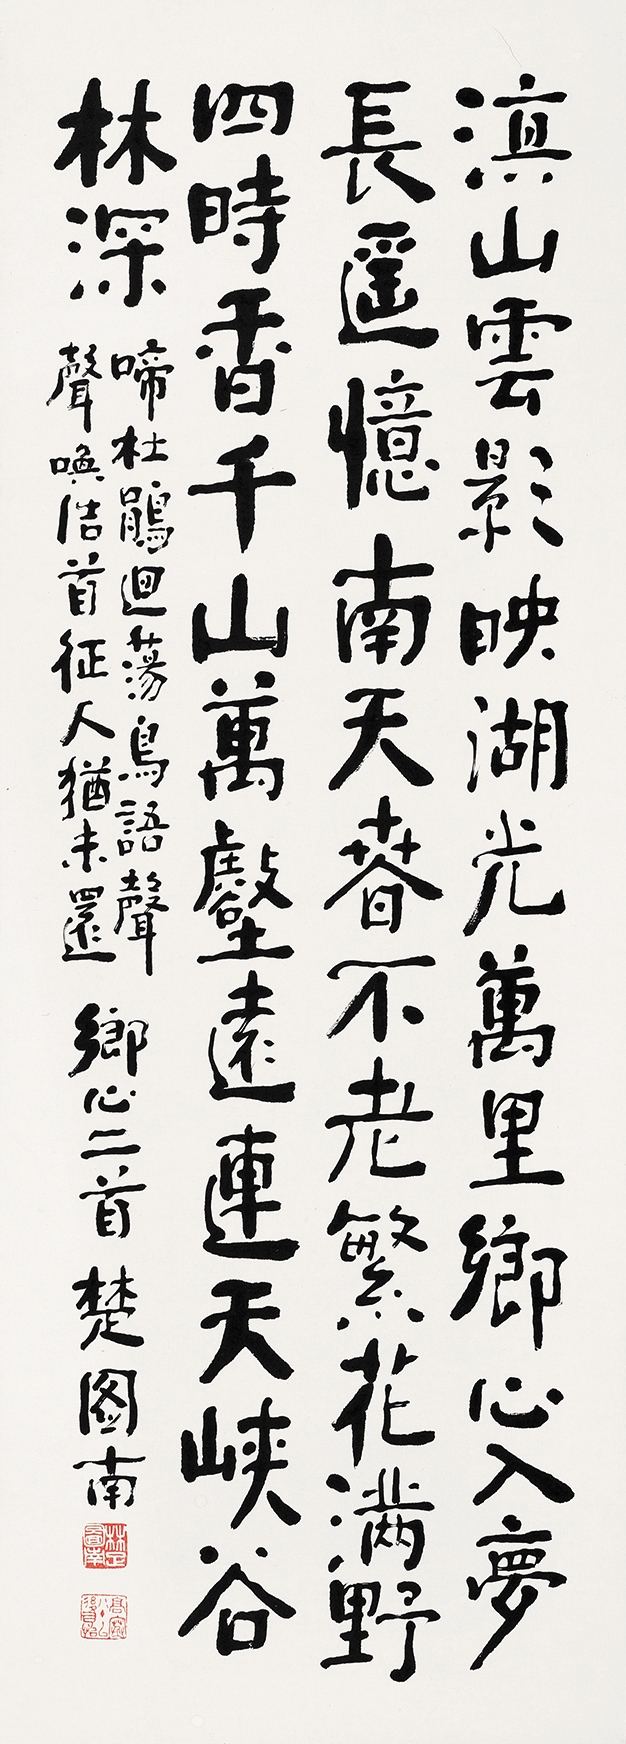 滇山雲影映湖光萬里鄉心入夢
長遥憶南天春不老繁花满野
四時香千山萬壑遠連天峽谷
林深
啼杜鵑迴蕩鳥語聲
聲喚浩首征人猶未還
鄉心二首 楚图南
楚图南